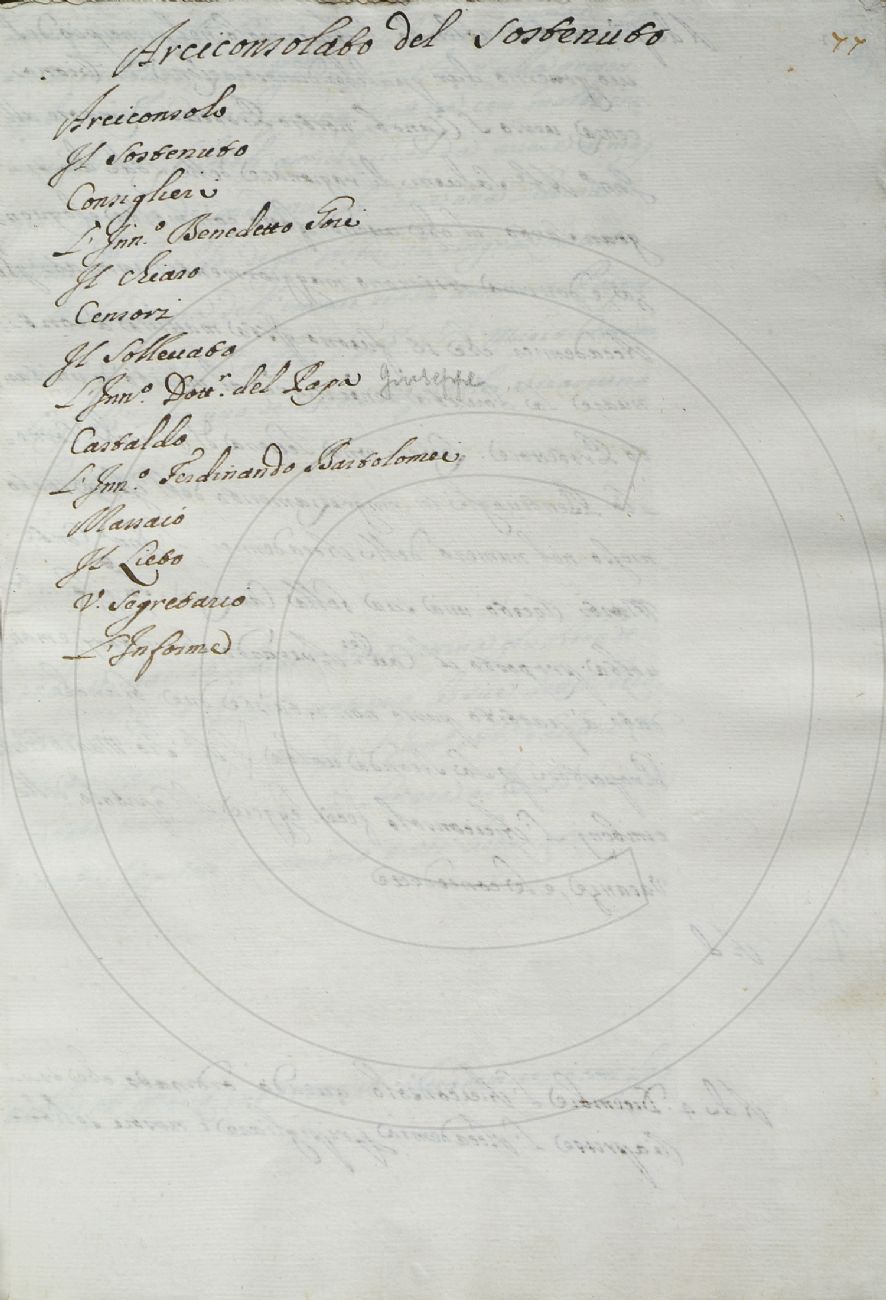 Arciconsolato del Sostenuto
77
Arciconsolo
Il Sostenuto
Consiglieri
L'Inn.º Benedetto Gori
Il Chiaro
Censori
Il Sollevato
L'Inn.º Dott.r del Papa Giuseppe
Castaldo
L'Inn.º Ferdinando Bartolomei
Massaio
Il Lieto
V. Segretario
L'Informe